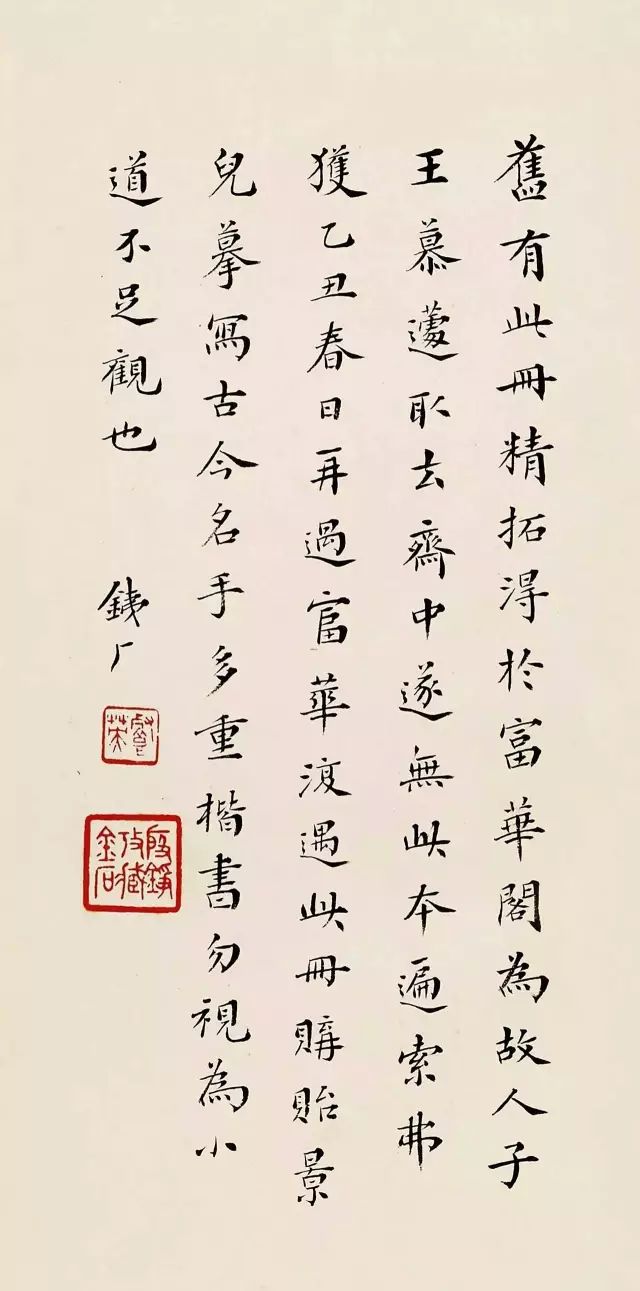 舊有此冊精拓淂於富華閣為故人子
王慕蘧取去齋中遂無此本遍索弗
獲乙丑春日再過富華復遇此冊購貽景
兒摹寫古今名手多重楷書勿視為小
道不足觀也
銕厂